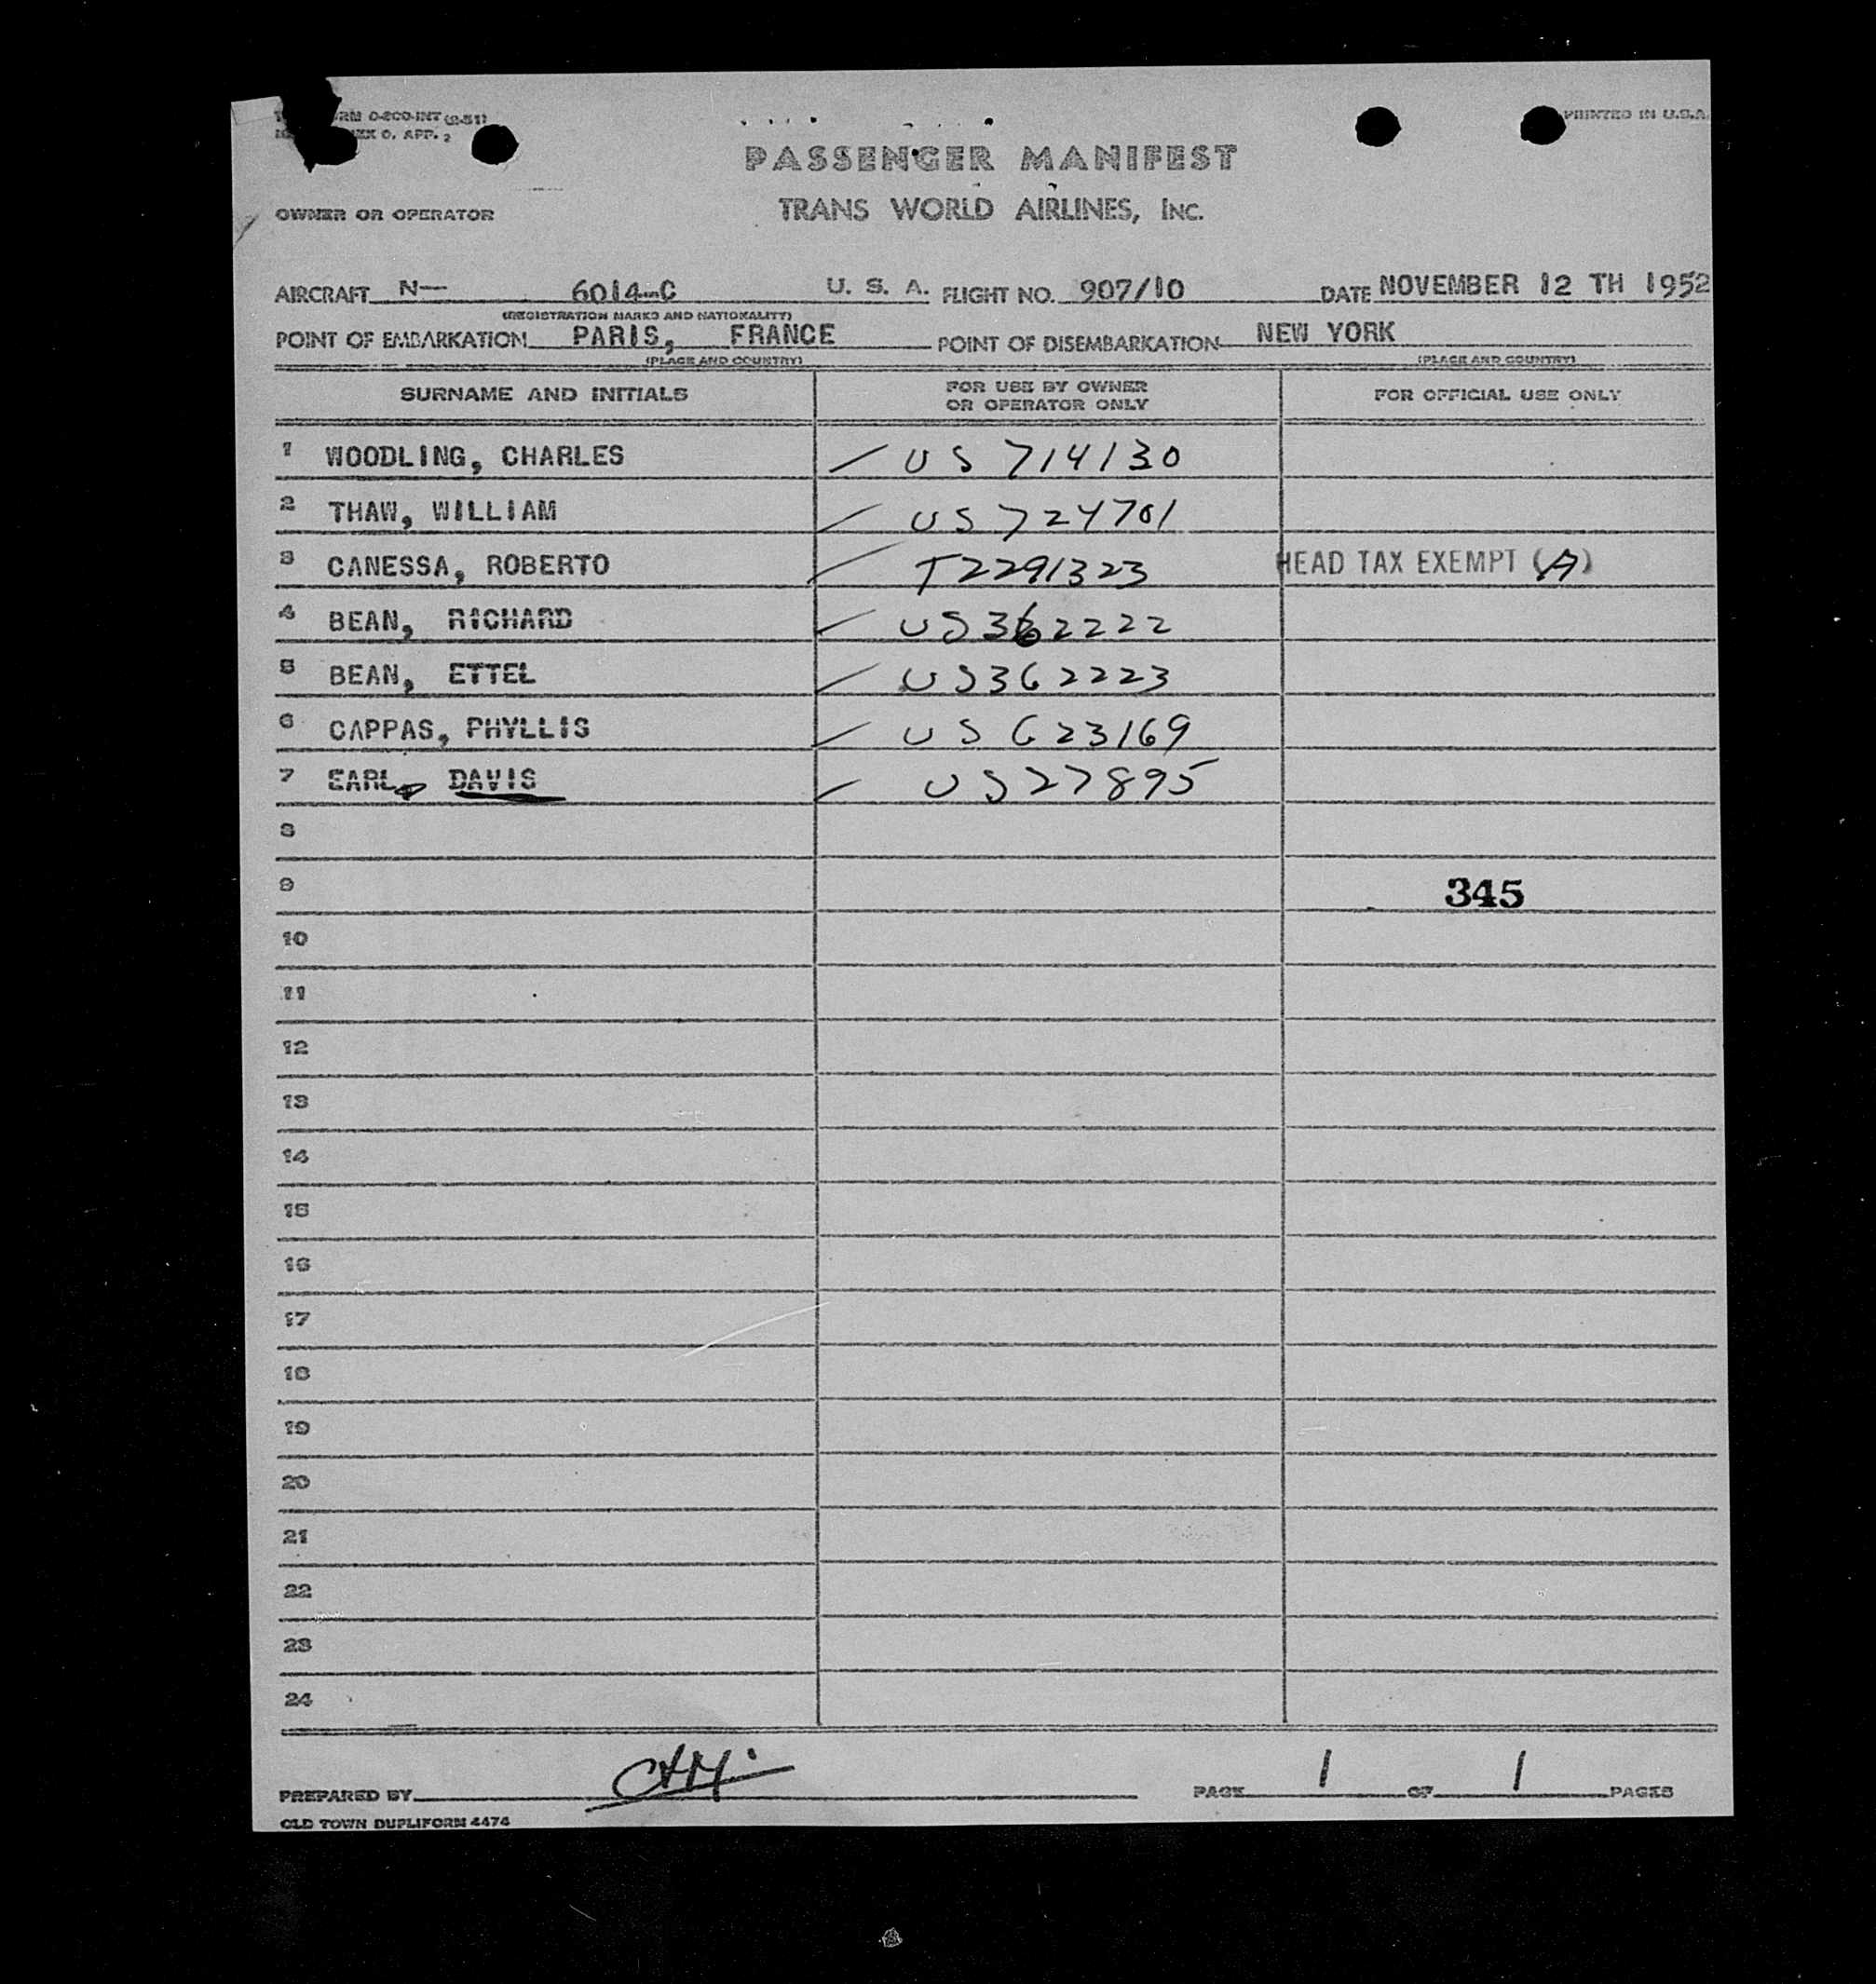 RM 0-200-INT (2-51)
EX 0. APP. 2
PRINTED IN U.S.A.
PASSENGER MANIFEST
OWNER OR OPERATOR
TRANS WORLD AIRLINES, INC.
AIRCRAFT N— 6014-C U. S. A. FLIGHT NO. 907/10 DATE NOVEMBER 12 TH 1952
(REGISTRATION MARKS AND NATIONALITY)
POINT OF EMBARKATION PARIS, FRANCE POINT OF DISEMBARKATION NEW YORK
(PLACE AND COUNTRY) (PLACE AND COUNTRY)
SURNAME AND INITIALS
FOR USE BY OWNER
OR OPERATOR ONLY
FOR OFFICIAL USE ONLY
1 WOODLING, CHARLES US 714130
2 THAW, WILLIAM US 724701
3 CANESSA, ROBERTO T2291323 HEAD TAX EXEMPT (A)
4 BEAN, RICHARD US362222
5 BEAN, ETTEL US362223
6 CAPPAS, PHYLLIS US 623169
7 EARL, DAVIS US27895
8
9 345
10
11
12
13
14
15
16
17
18
19
20
21
22
23
24
PREPARED BY PAGE 1 OF 1 PAGES
OLD TOWN DUPLIFORM 4474